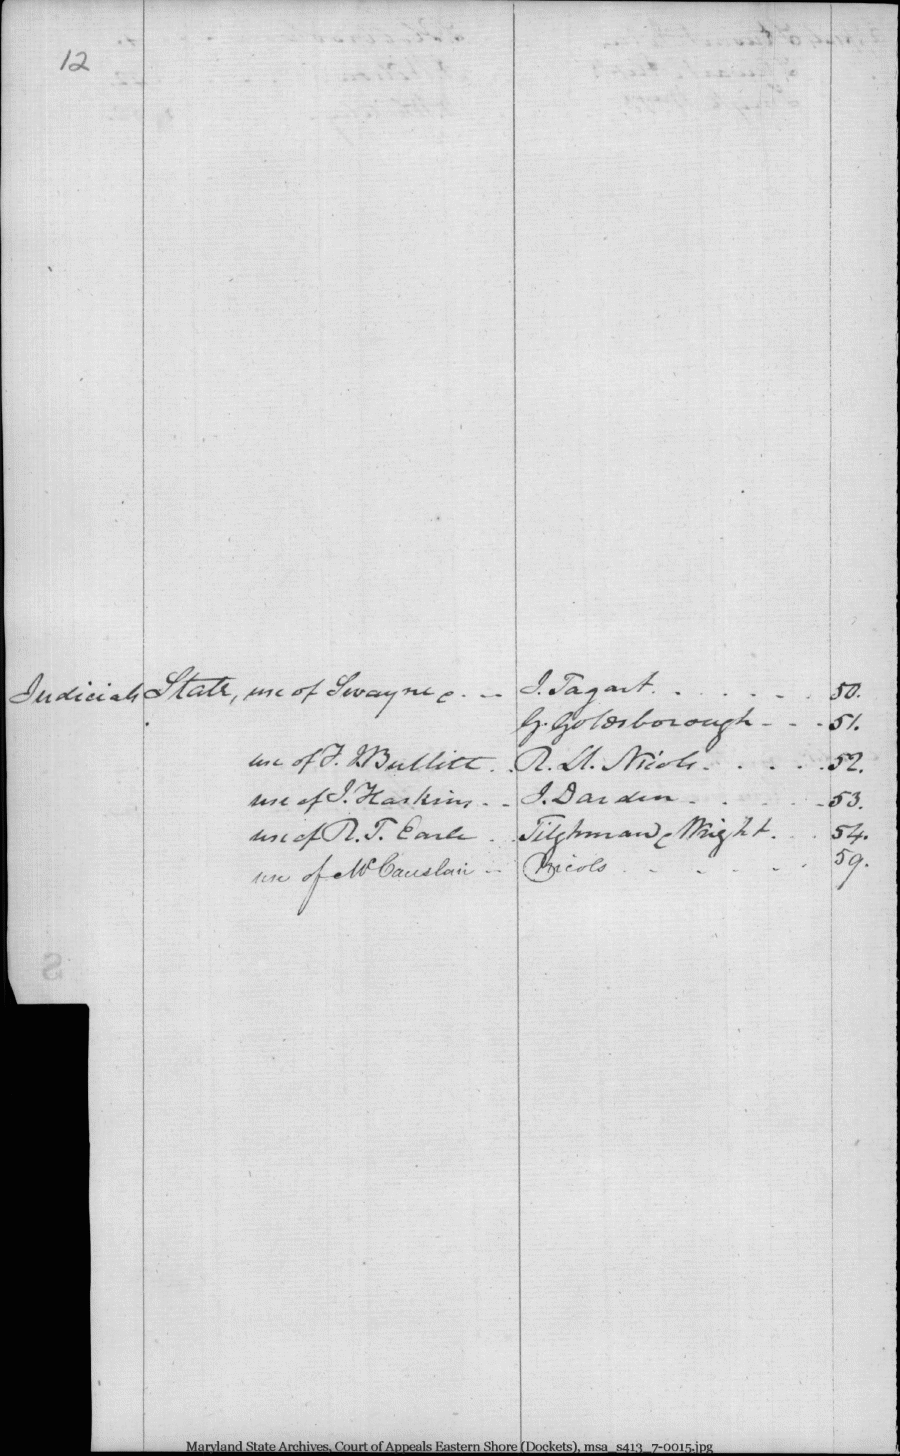 12
Judicials State, use of Swayne &. - - J. Tagart. . . . - - . 50.
G. Goldsborough - - - 51.
use of T. J. Bullitt . . R. H. Nicols. . . . . 52.
use of J. Haskins - - J. Darden - . . . - 53.
use of R. T. Earle . . Tilghman & Wright. . . 54.
use of McCauslain - - Nicols . . - - - . 59.
Maryland State Archives, Court of Appeals Eastern Shore (Dockets), msa_s413_7-0015.jpg